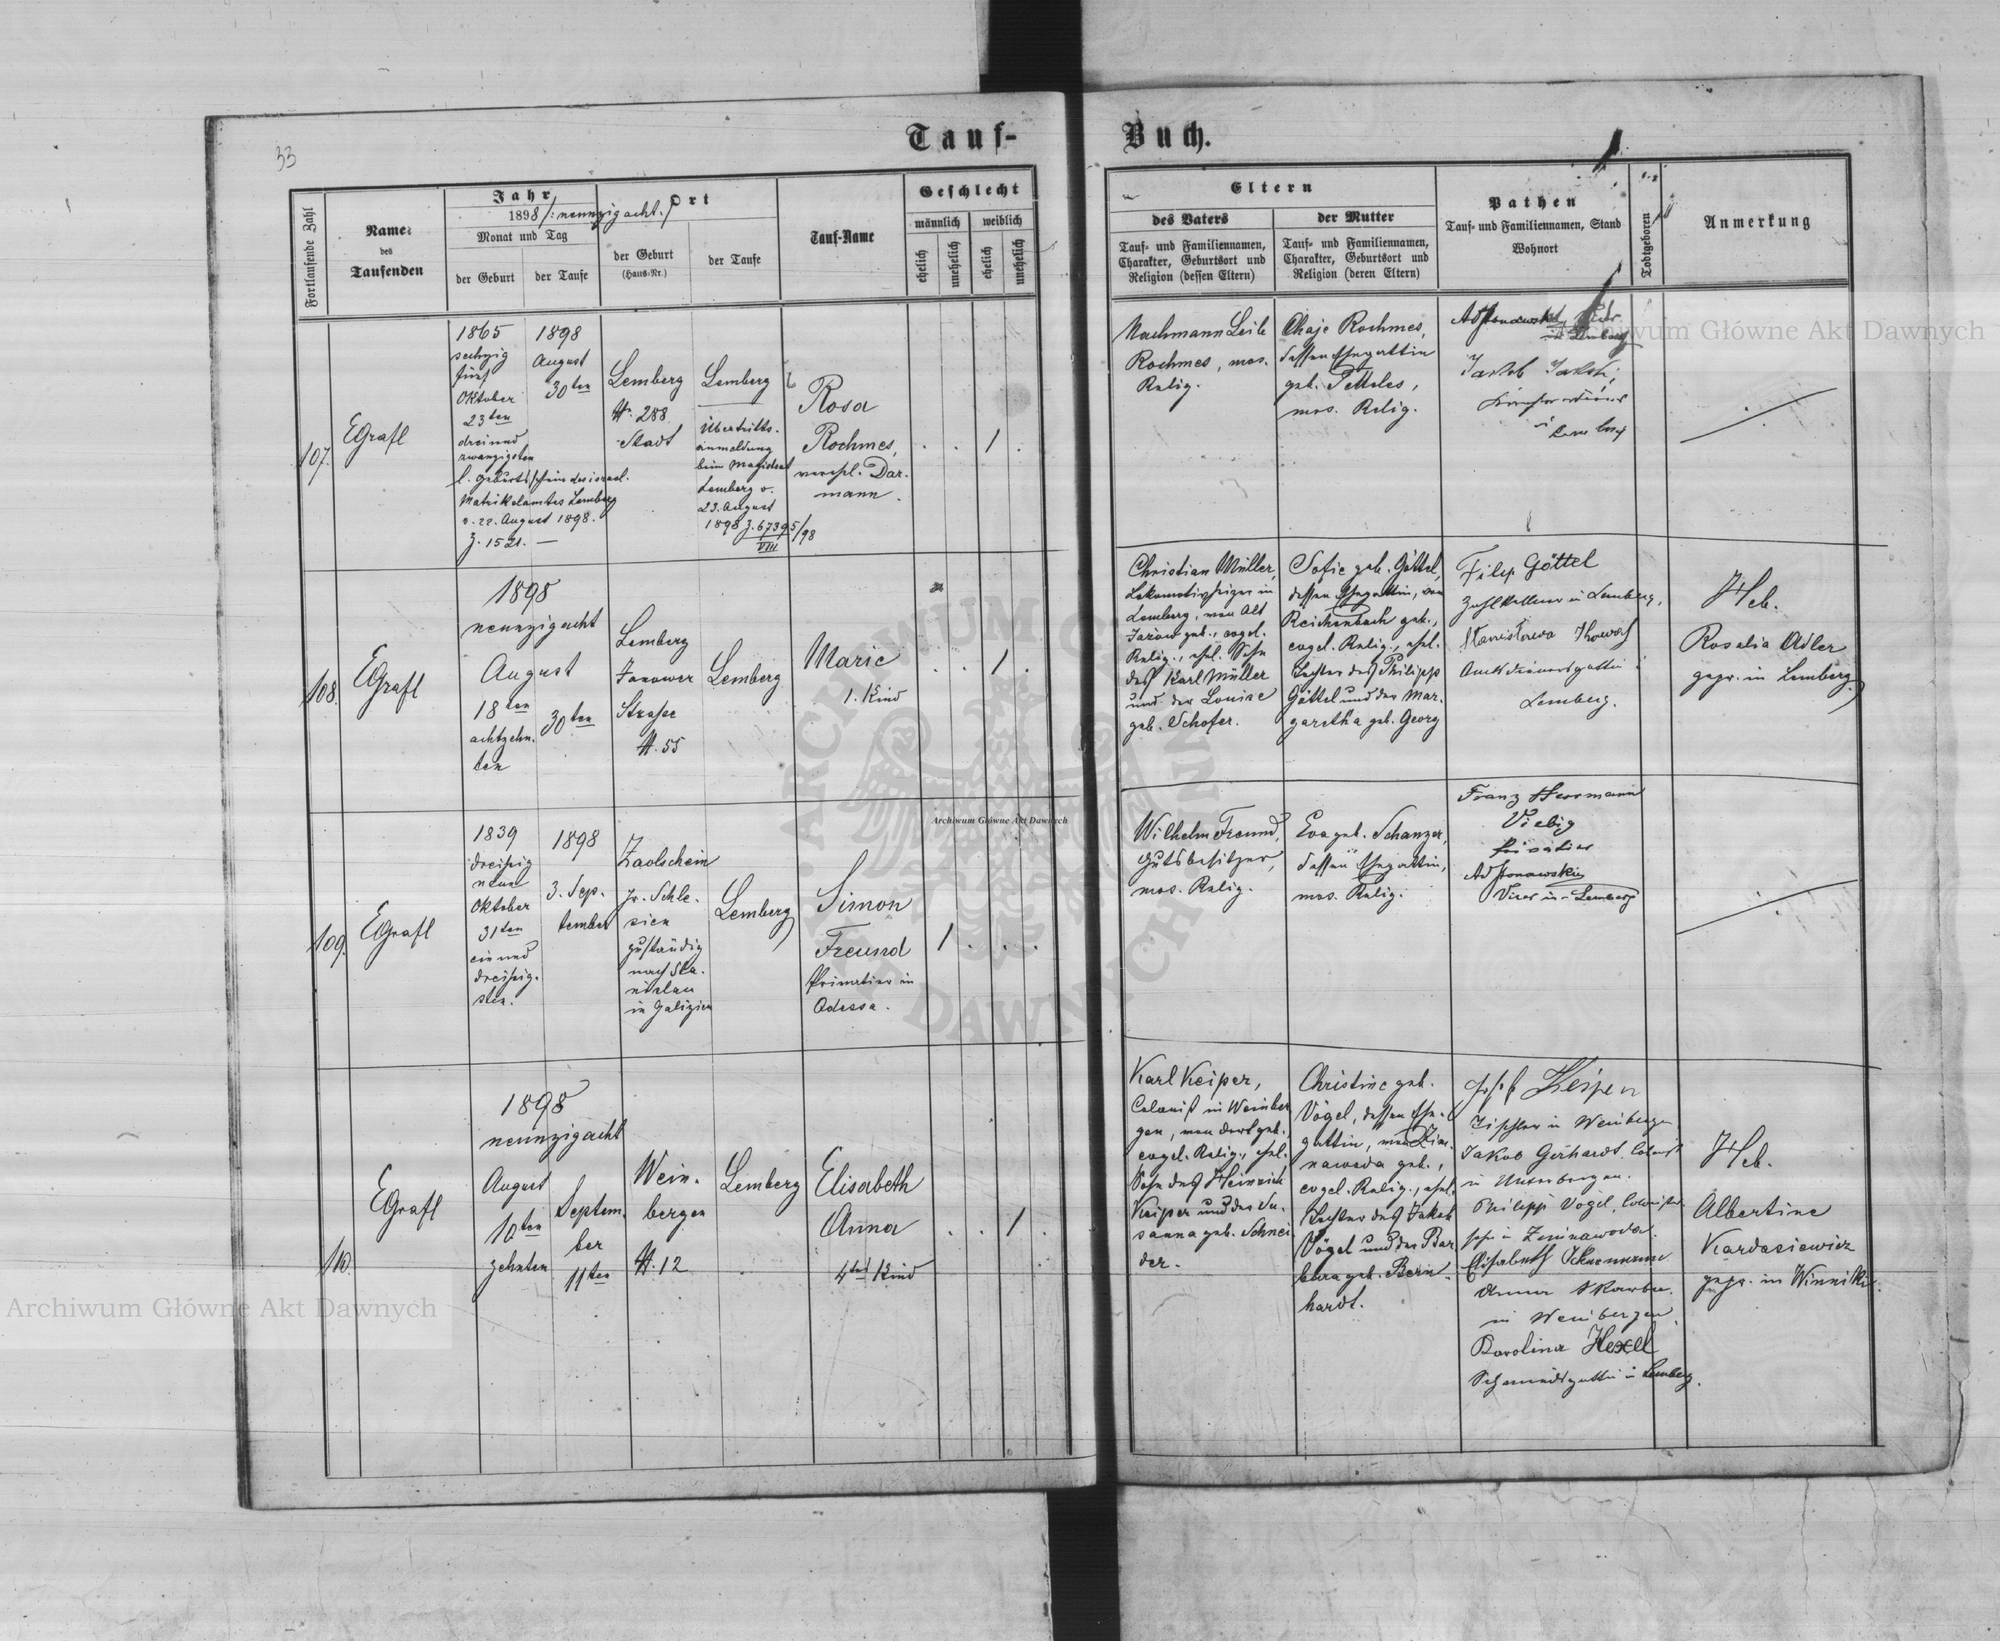 33
Tauf-
Buch.
Fortlaufende Zahl
Name
des
Taufenden
Jahr
1898 /: neunzigacht :/
Monat und Tag
der Geburt
der Taufe
Ort
der Geburt
(Haus-Nr.)
der Taufe
Tauf-Name
Geschlecht
männlich
weiblich
ehelich
unehelich
ehelich
unehelich
Eltern
des Vaters
Tauf- und Familiennamen,
Charakter, Geburtsort und
Religion (dessen Eltern)
der Mutter
Tauf- und Familiennamen,
Charakter, Geburtsort und
Religion (deren Eltern)
Pathen
Tauf- und Familiennamen, Stand
Wohnort
Todtgeboren
Anmerkung
107.
EGrafl
1865
sechzig
fünf
Oktober
23ten
dreiund
zwanzigsten
l. Geburtsschein des israel.
Matrikelamtes Lemberg
v. 22. August 1898.
Z. 1521. —
1898
August
30ten
Lemberg
N. 288
Stadt
Lemberg
Übertritts-
anmeldung
beim Magistrat
Lemberg v.
23. August
1898 Z. 67395/98
VIII
Rosa
Rochmes,
verehl. Dar-
mann.
1
Nachmann Leib
Rochmes, mos.
Relig.
Chaje Rochmes,
dessen Ehegattin
geb. Petteles,
mos. Relig.
Jakob
108.
EGrafl
1898
neunzigacht
August
18ten
achtzehn-
ten
30ten
Lemberg
Janower
Strasse
N. 55
Lemberg
Marie
1. Kind
1
Christian Müller,
Lokomotivheizer in
Lemberg, von Alt
Jazow geb., evgel.
Relig., ehel. Sohn
des Karl Müller
und der Louise
geb. Schofer.
Sofie geb. Göttel,
dessen Ehegattin, von
Reichenbach geb.,
evgel. Relig., ehel.
Tochter des Philipp
Göttel und der Mar-
garetha geb. Georg
Filip Göttel
Zahlkellner in Lemberg,
Stanisława
Amtsdienersgattin
Lemberg.
Heb.
Rosalia Adler
gepr. in Lemberg
109.
EGrafl
1839
dreissig
neun
Oktober
31ten
ein und
dreissig-
sten.
1898
3. Sep-
tember
Zaolschein
Pr. Schle-
sien
zuständig
nach Sta-
nislau
in Galizien
Lemberg
Simon
Freund
Privatier in
Odessa.
1
Wilhelm Freund,
Gutsbesitzer,
mos. Relig.
Eva geb. Schanzer,
dessen Ehegattin,
mos. Relig.
Franz Herrmann
Viebig
Privatier
Vicar in Lemberg
110.
EGrafl
1898
neunzigacht
August
10ten
zehnten
Septem-
ber
11ten
Wein-
bergen
N. 12
Lemberg
Elisabeth
Anna
4tes Kind
1
Karl Keiper,
Colonist in Weinber
gen, von dort geb.
evgel. Relig., ehel.
Sohn des Heinrich
Keiper und der Su-
sanna geb. Schnei
der.
Christine geb.
Vögel, dessen Ehe-
gattin, von Zim-
nawoda geb.,
evgel. Relig., ehel.
Tochter des Jakob
Vögel und der Bar
bara geb. Bern-
hardt.
Josef Keiper
Tischler in Weinbergen
Jakob Gerhardt, Colonist
in Unterbergen.
Philipp Vögel, Colonisten-
sohn in Zimnawoda.
Elisabeth
Anna
in Weinbergen,
Karolina Hexel
Schmiedsgattin in Lemberg.
Heb.
Albertine
Kardasiewicz
gepr. in Winniki.
Archiwum Główne Akt Dawnych
Archiwum Główne Akt Dawnych
Archiwum Główne Akt Dawnych
ARCHIWUM GŁÓWNE AKT DAWNYCH